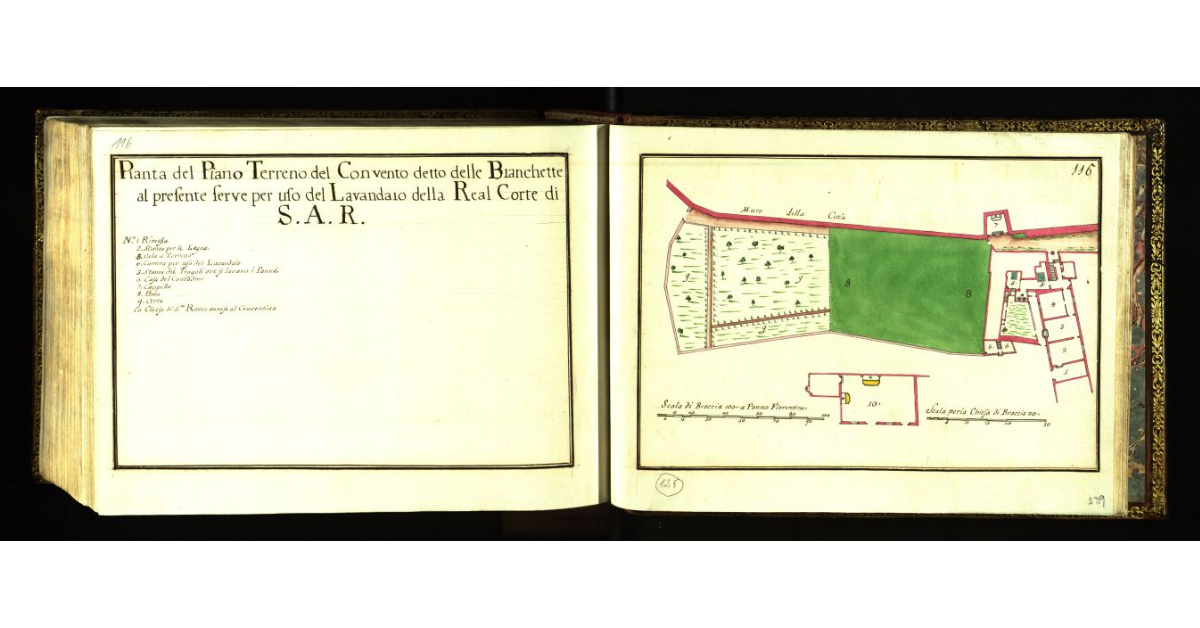 116
Pianta del Piano Terreno del Convento detto delle Bianchette
al presente serve per uso del Lavandaio della Real Corte di
S. A. R.
N.º 1 Rimessa
2. Stanze per le Legne
3. Sala a Terreno
4. Camera per uso del Lavandaio
5. Stanze dei Trogoli ove si lavano i Panni
6. Casa del Contadino
7. Cappella
8.
9. Orto
10. Chiesa di S.ta annessa al
116
Muro della Città
7
9
9
8
8
9
5
4
3
2
1
6
6
10.
Scala di Braccia 100 a Panno Fiorentine
Scala per la Chiesa di Braccia 20
125
239